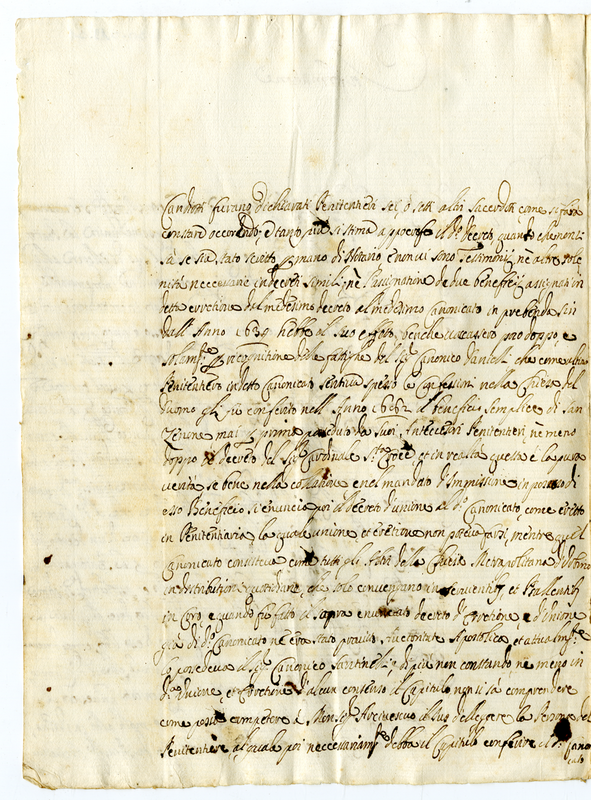 Candotti furano dichiarati Penitentieri sei, ò sette altri Sacerdoti come si farà
constare occorrendo, e tanto più si stima appocrifo il d.º decreto, quanto che non si
sa se sia stato scritto p mano di Notaro, e non vi sono testimonij, nè altre sole
nità necessarie in decreti simili, nè l'assignatione de due beneficij assignati in
detta erettione dal medesimo decreto al medesimo Canonicato in prebenda sin
dall'Anno 1639 hebbe il suo effetto, benche vaccassero poco doppo, e
solam.te p recognitione delle fatighe del Sig.r Canonico che come
Penitentiero in detto Canonicato sentiva spesso le Confessioni nella Chiesa del
Duomo gli fù conferito nell'Anno 1662 il beneficio semplice di San
Zenone mai p prima posseduto da suoi Antecessori Penitentieri, nè meno
doppo il decreto del Sig.r Cardinale et in realtà questa è la pura
verità se bene nella collatione e nel mandato d'immissione in possesso di
esso Beneficio si enuncia poi il decreto d'unione al d.º Canonicato, come eretto
in Penitentiaria la quale unione et erettione non poteva farsi, mentre quel
Canonicato consisteva come tutti gli Altri della Chiesa Metropolitana
in distributioni quotidiane, che solo convengano in servientibus et Psallentibus
in Coro, e quando fù fatto il sopra enunciato decreto d'Erettione, e d'Unione
già di d.º Canonicato n'era stato provisto Auctoritate Apostolica, et attualm.te
lo possedeva il Sig.r Canonico Santinelli, e di più non constando, nè meno in
d.ª Unione, et Erettione d'alcun consenso del Capitolo non si sà comprendere
come possa competere à Mons.r Arcivescovo il Ius d'elleggere la Persona del
Penitentiere, al quale poi neccessariam.te debba il Capitolo conferire il d.º Cano
cato